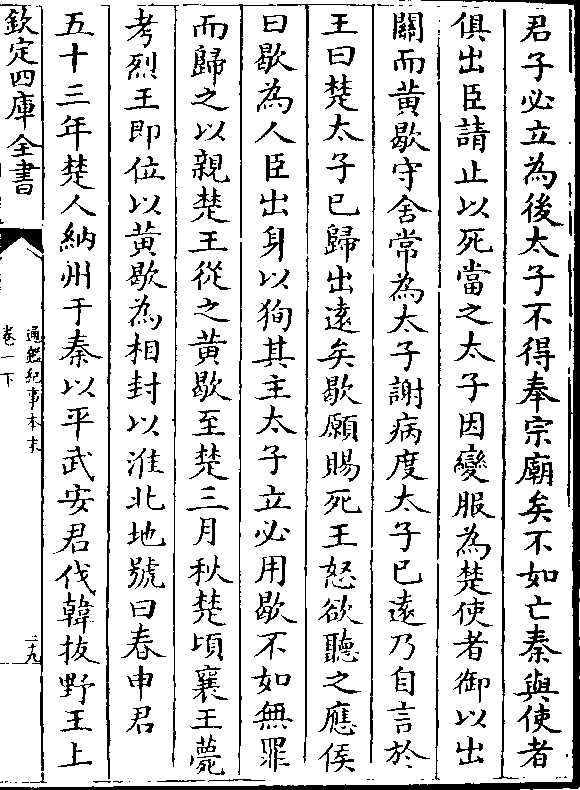 君子必立為後太子不得奉宗廟矣不如亡秦與使者
俱出臣請止以死當之太子因變服為楚使者御以出
關而黄歇守舍常為太子謝病度太子已逺乃自言於
王曰楚太子已歸出逺矣歇願賜死王怒欲聽之應侯
曰歇為人臣出身以狥其主太子立必用歇不如無罪
而歸之以親楚王從之黄歇至楚三月秋楚頃襄王薨
考烈王即位以黄歇為相封以淮北地號曰春申君
五十三年楚人納州于秦以平武安君伐韓拔野王上
欽定四庫全書
通鑑紀事本末
卷一下
二十九